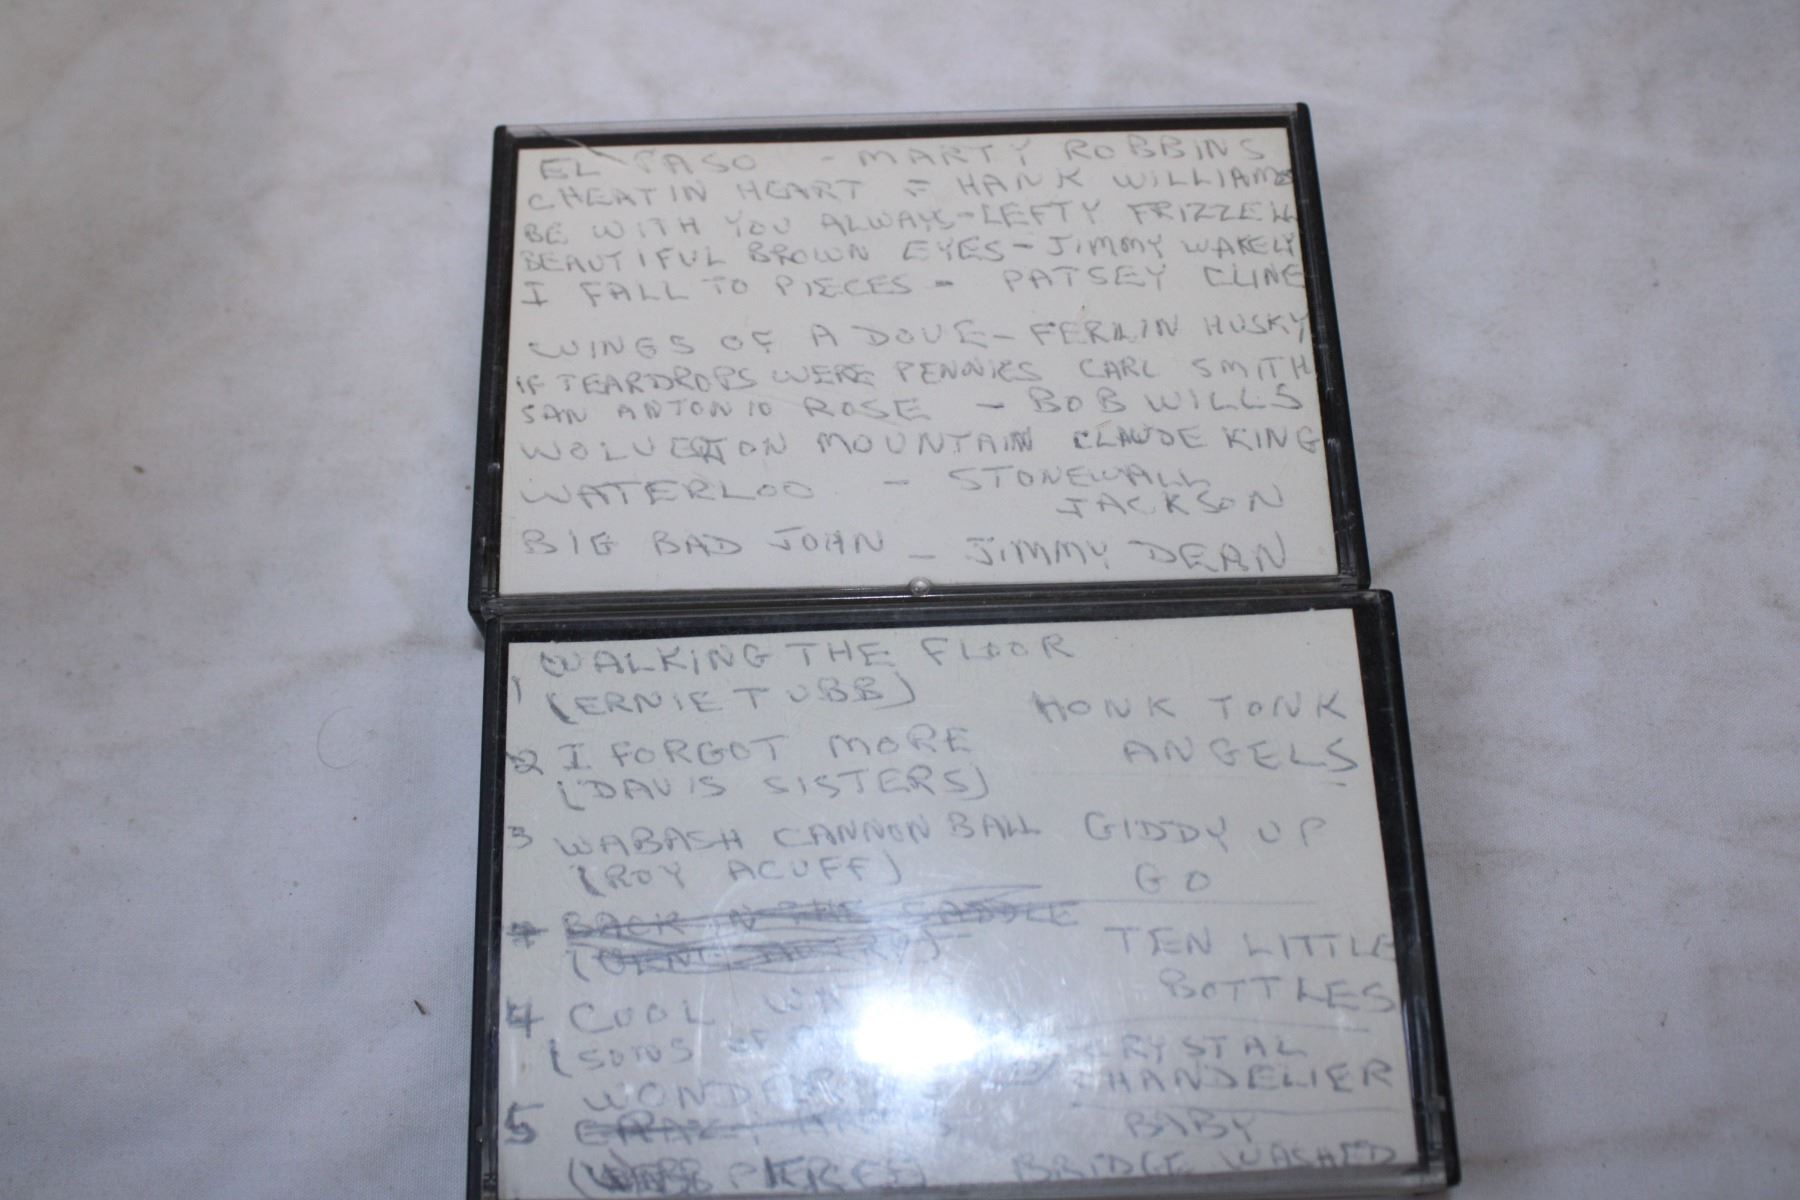 EL PASO - MARTY ROBBINS
CHEATIN HEART = HANK WILLIAMS
BE WITH YOU ALWAYS - LEFTY FRIZZELL
BEAUTIFUL BROWN EYES - JIMMY WAKELY
I FALL TO PIECES - PATSEY CLINE
WINGS OF A DOVE - FERLIN HUSKY
IF TEARDROPS WERE PENNIES CARL SMITH
SAN ANTONIO ROSE - BOB WILLS
WOLVERTON MOUNTAIN CLAUDE KING
WATERLOO - STONEWALL
JACKSON
BIG BAD JOHN - JIMMY DEAN
WALKING THE FLOOR
1 (ERNIE TUBB)
2 I FORGOT MORE
(DAVIS SISTERS)
3 WABASH CANNON BALL
(ROY ACUFF)
BACK IN THE SADDLE
4 COOL
(SONS OF
5
PIERCE)
HONK TONK
ANGELS
GIDDY UP
GO
TEN LITTLE
BOTTLES
CRYSTAL
CHANDELIER
BABY
BRIDGE WASHED